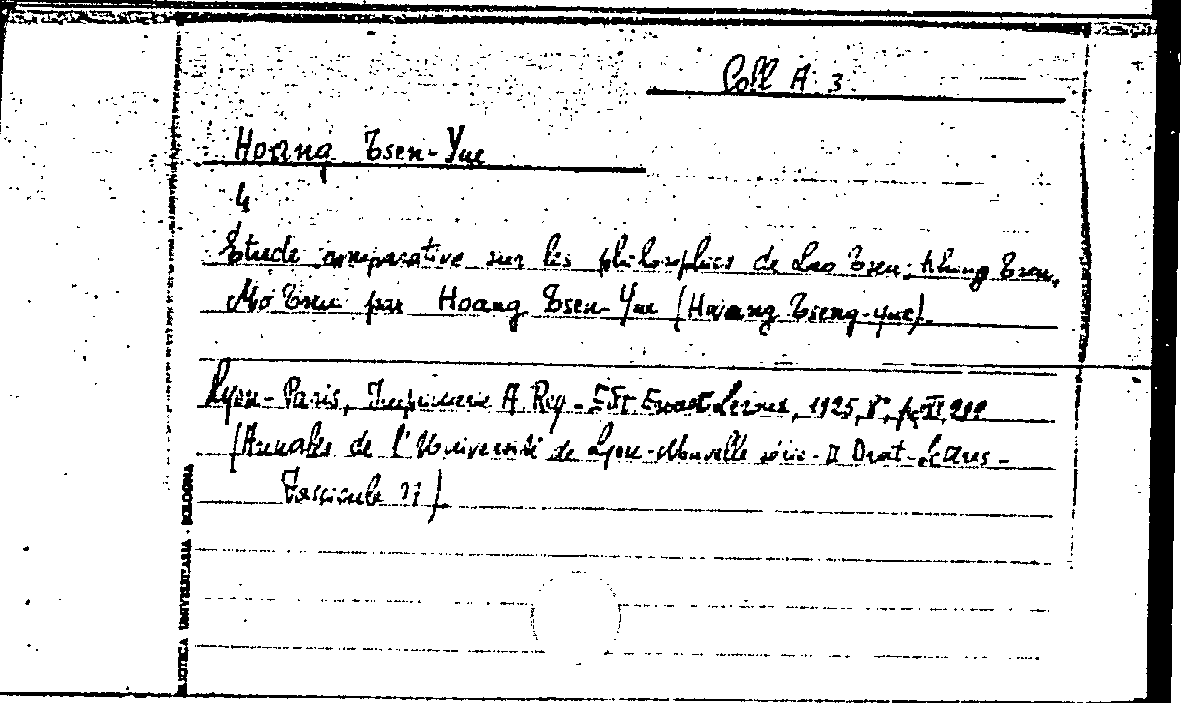 Coll A. 3.
Hoang Tsen-Yue
4
Etude comparative sur les philosophies de Lao Tseu, Khung Tseu,
Mo Tseu par Hoang Tsen-Yue (Hoang Tseng-yue).
Lyon-Paris, Imprimerie A. Rey - Edit Ernest Leroux, 1925, 8°, p.
(Annales de l'Université de Lyon-Nouvelle série-II Droit-Lettres-
Fascicule
BIBLIOTECA UNIVERSITARIA - BOLOGNA